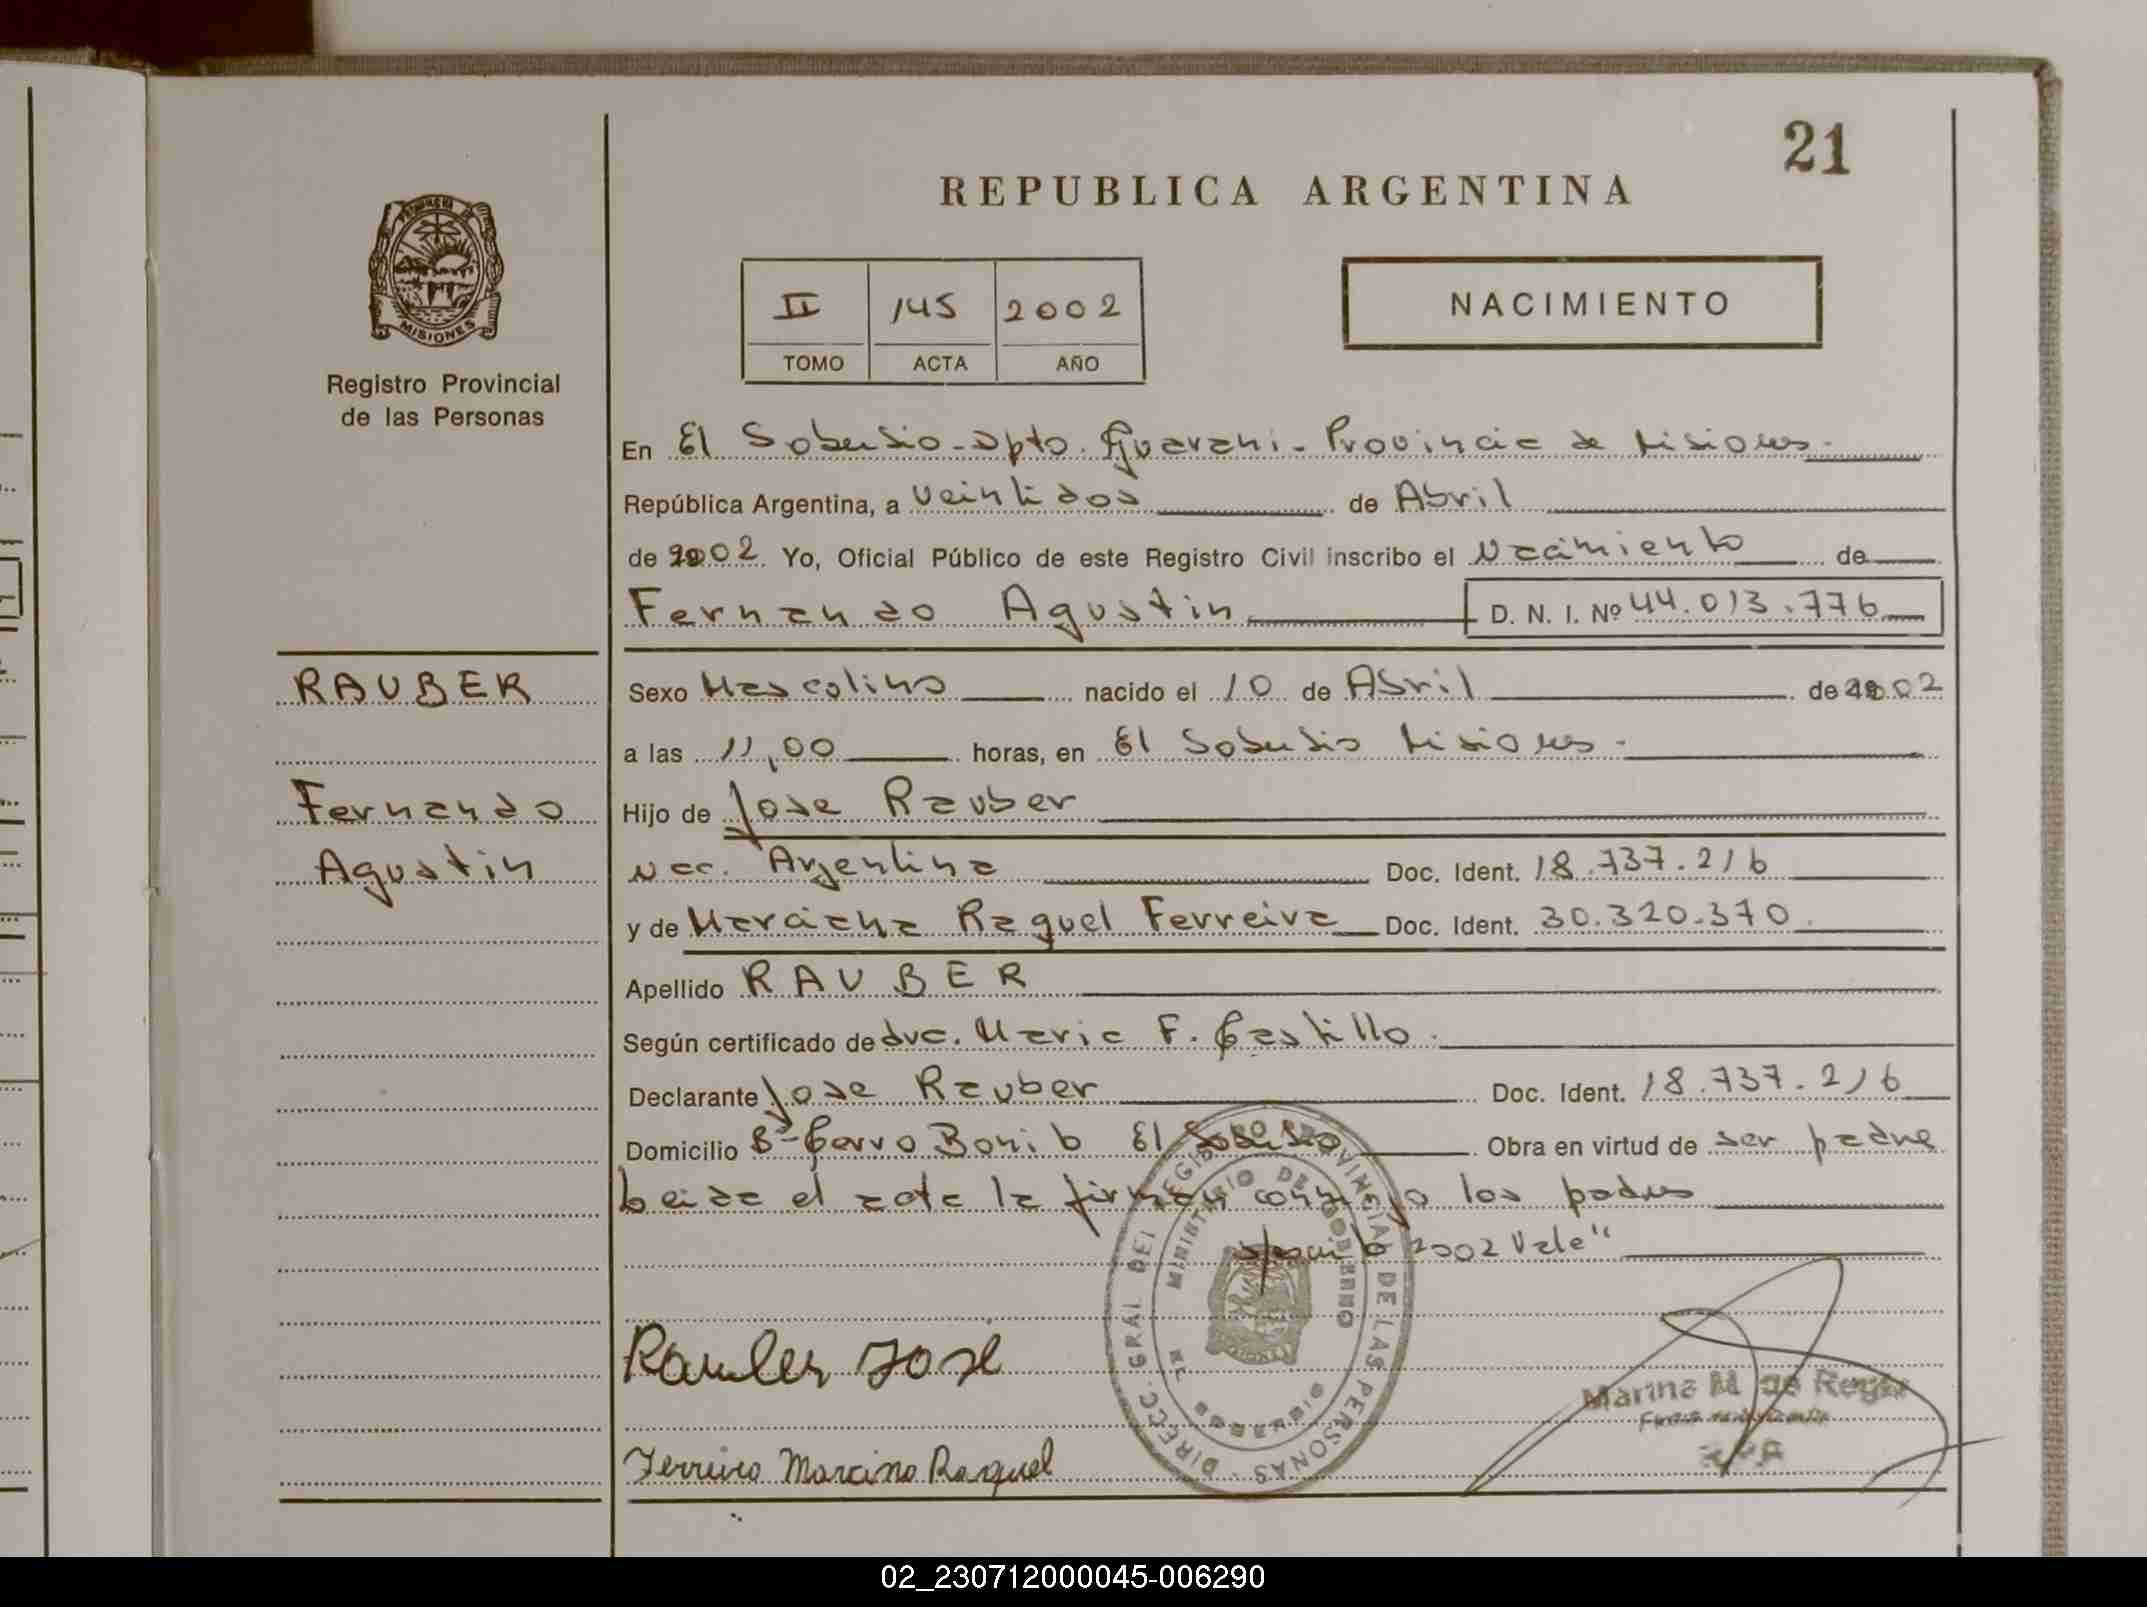 21
REPUBLICA ARGENTINA
MISIONES
Registro Provincial
de las Personas
II 145 2002
TOMO ACTA AÑO
NACIMIENTO
En El Soberbio - Dpto. Guarani - Provincia de Misiones -
República Argentina, a veintidos de Abril
de 2002 Yo, Oficial Público de este Registro Civil inscribo el Nacimiento de
Fernando Agustin D. N. I. Nº 44.013.776
RAUBER
Fernando
Agustin
Sexo Masculino nacido el 10 de Abril de 2002
a las 11,00 horas, en El Soberbio Misiones -
Hijo de Jose Rauber
Nac. Argentina Doc. Ident. 18.737.216
y de Marciana Raquel Ferreira Doc. Ident. 30.320.370
Apellido RAUBER
Según certificado de dra. Maria F. Castillo.
Declarante Jose Rauber Doc. Ident. 18.737.216
Domicilio Bº Cerro Bonito El Soberbio Obra en virtud de ser padre
Leida el acta la firman conmigo los padres
2002 Vale"
Rauber José
Ferreira Marciana Raquel
DIRECC. GRAL DEL REGISTRO PROVINCIAL DE LAS PERSONAS
MINISTERIO DE GOBIERNO
MISIONES
Marina M de
02_230712000045-006290